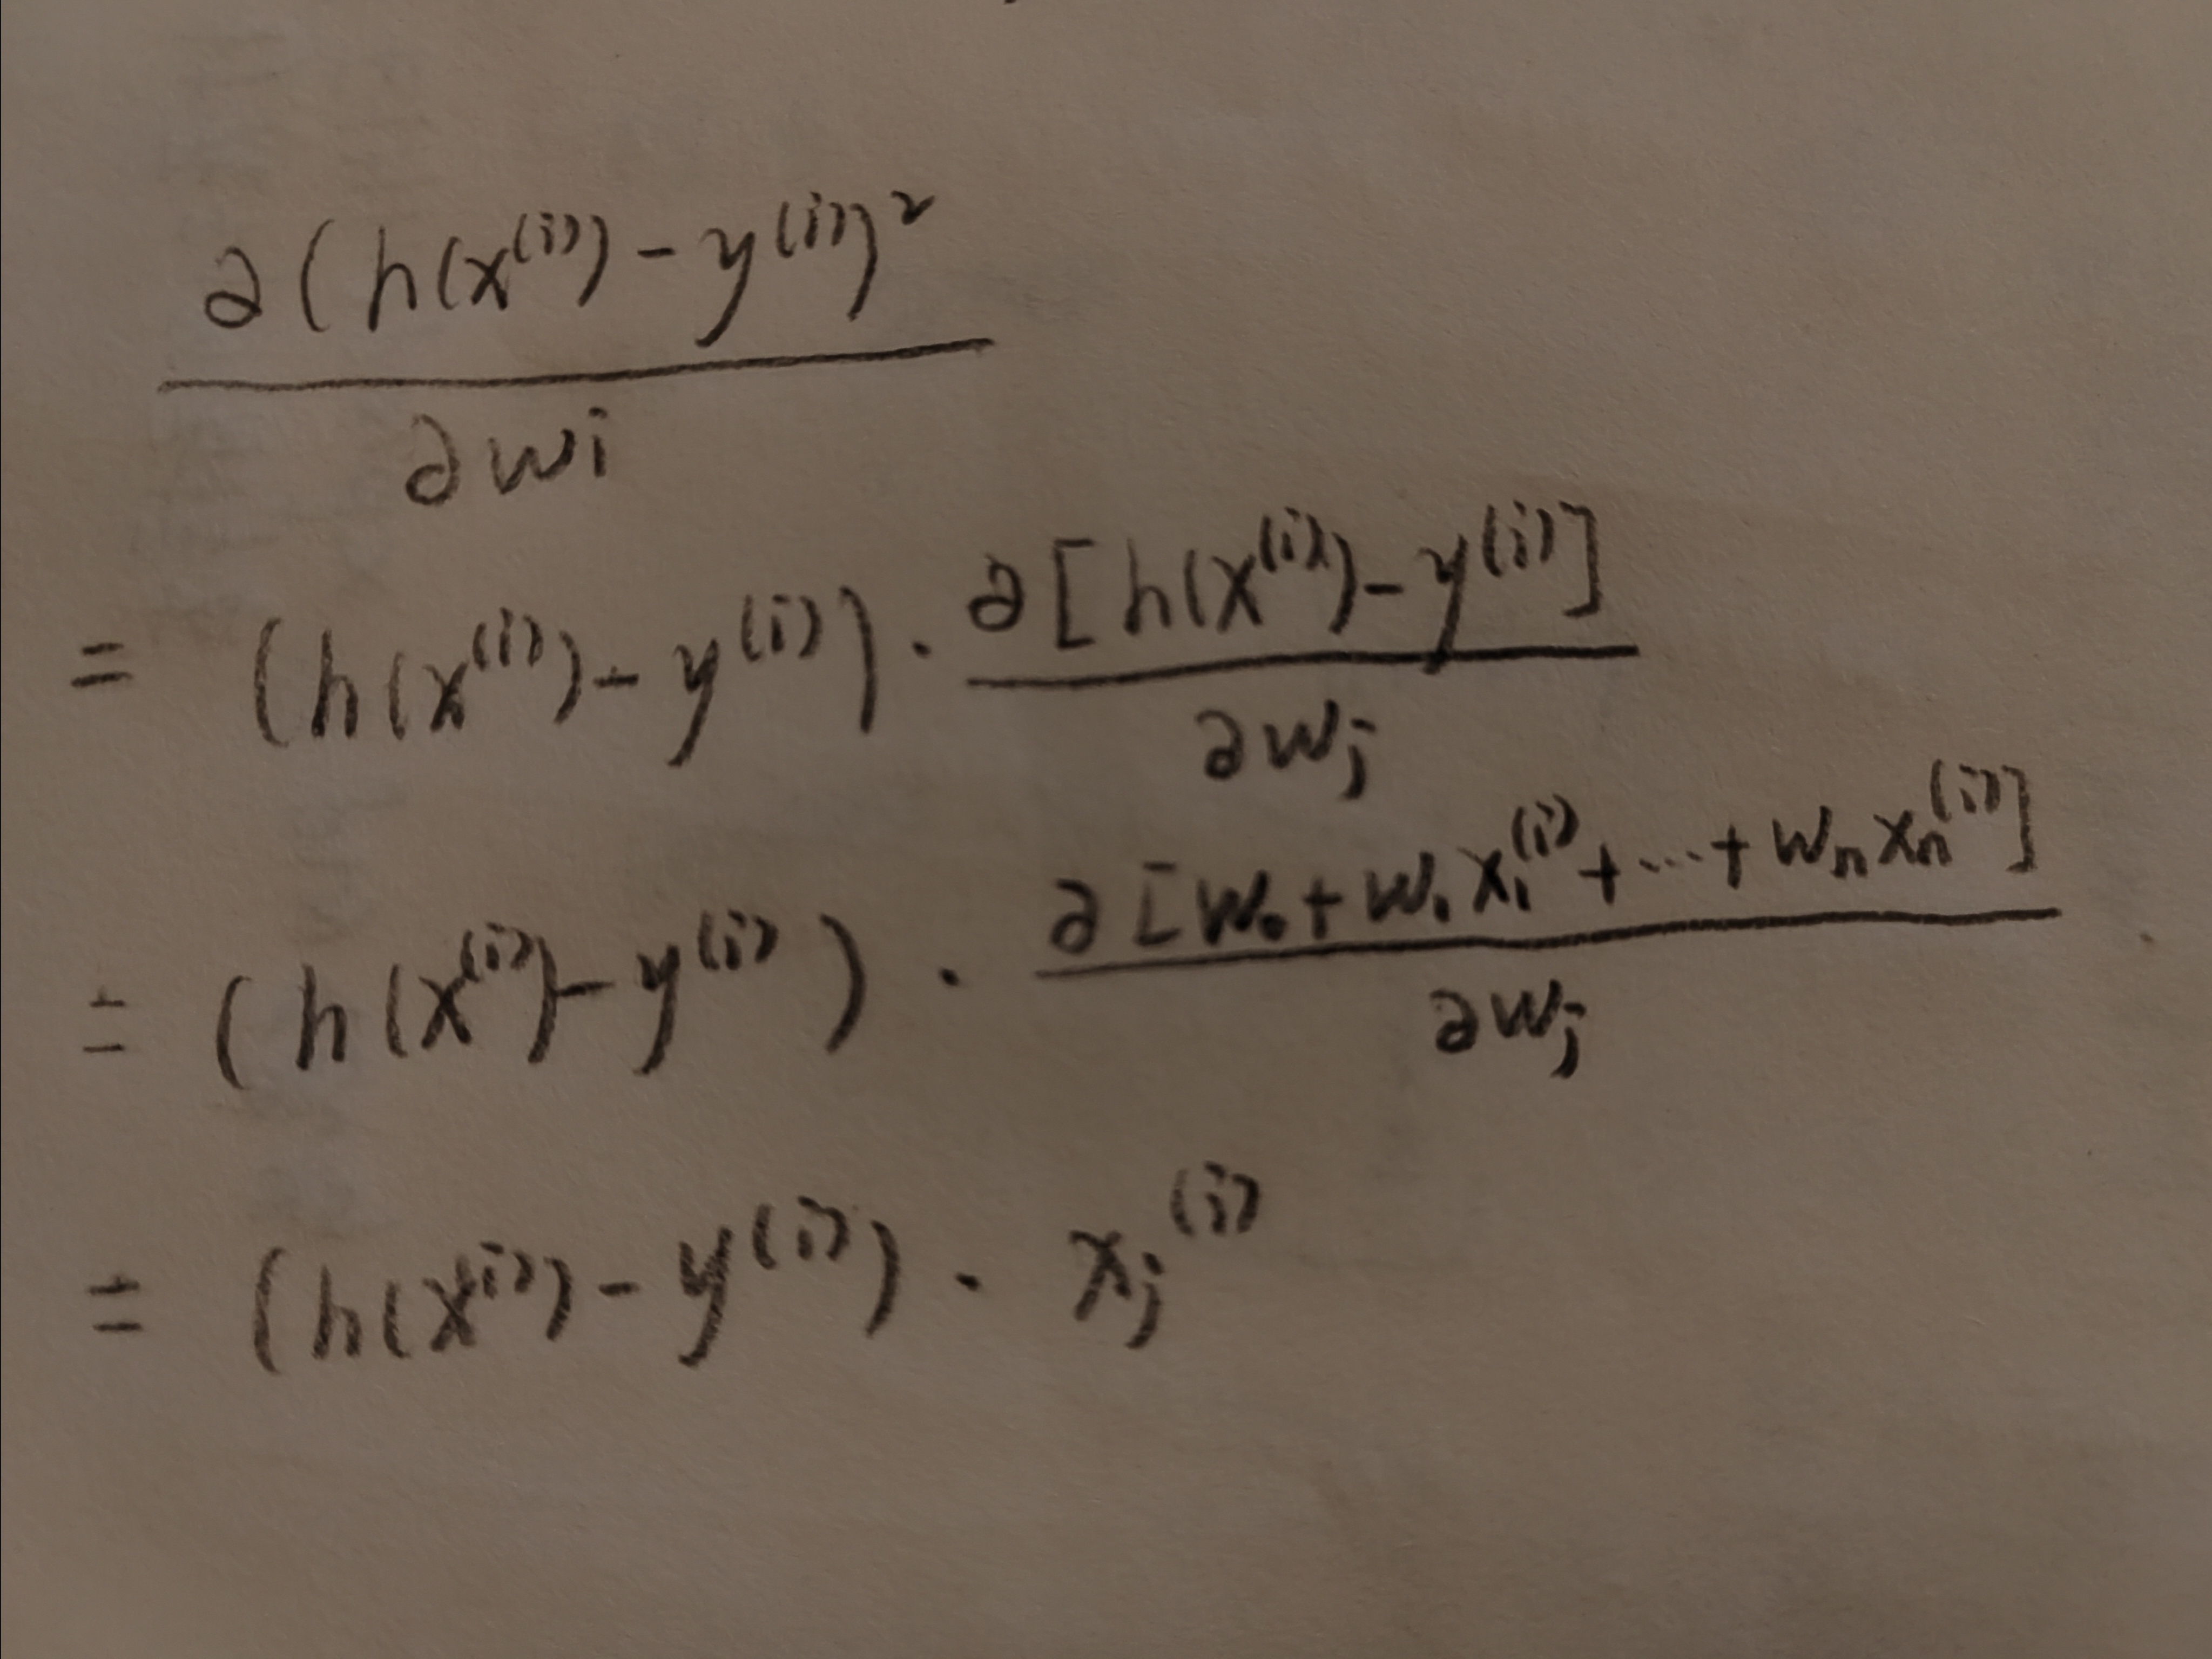 ∂(h(x⁽ⁱ⁾) - y⁽ⁱ⁾)² / ∂wi
= (h(x⁽ⁱ⁾) - y⁽ⁱ⁾) · ∂[h(x⁽ⁱ⁾) - y⁽ⁱ⁾] / ∂wⱼ
= (h(x⁽ⁱ⁾) - y⁽ⁱ⁾) · ∂[w₀ + w₁x₁⁽ⁱ⁾ + ... + wₙxₙ⁽ⁱ⁾] / ∂wⱼ
= (h(x⁽ⁱ⁾) - y⁽ⁱ⁾) · xⱼ⁽ⁱ⁾